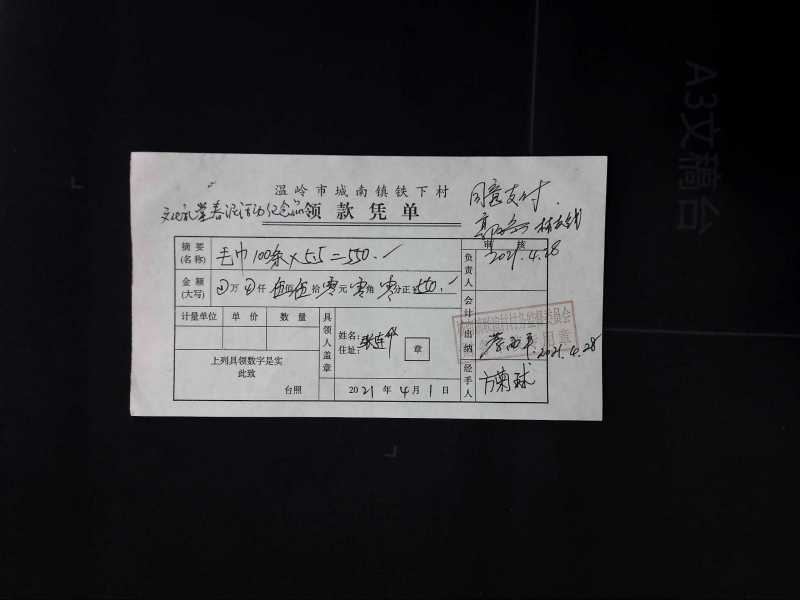 温岭市城南镇铁下村
同意支付.
文化礼堂春泥活动纪念品领款凭单
摘要(名称) 毛巾100条×5.5=550.
审核
2021.4.28
负责人
金额(大写) 万 仟 伍佰伍拾零元零角零分正 550.
计量单位 单价 数量
会计出纳
2021.4.28
具领人盖章
姓名:
住址:
章
上列具领数字是实
此致
台照
2021年4月1日
经手人 方菊球
A3文稿台